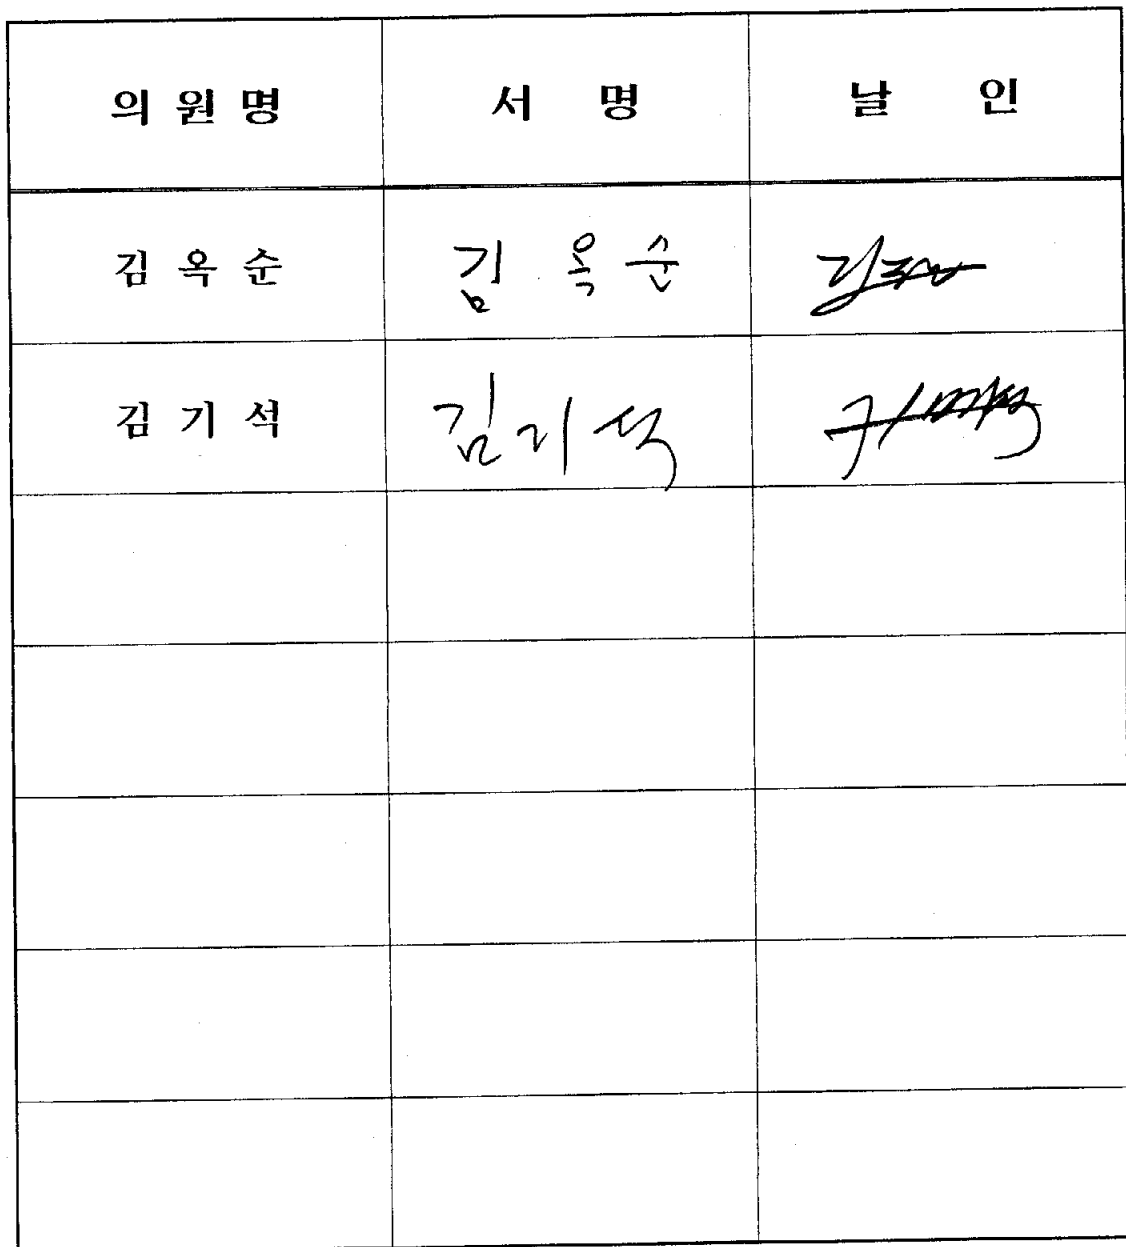 의 원 명 서 명 날 인
김 옥 순 김 옥 순
김 기 석 김 기 석